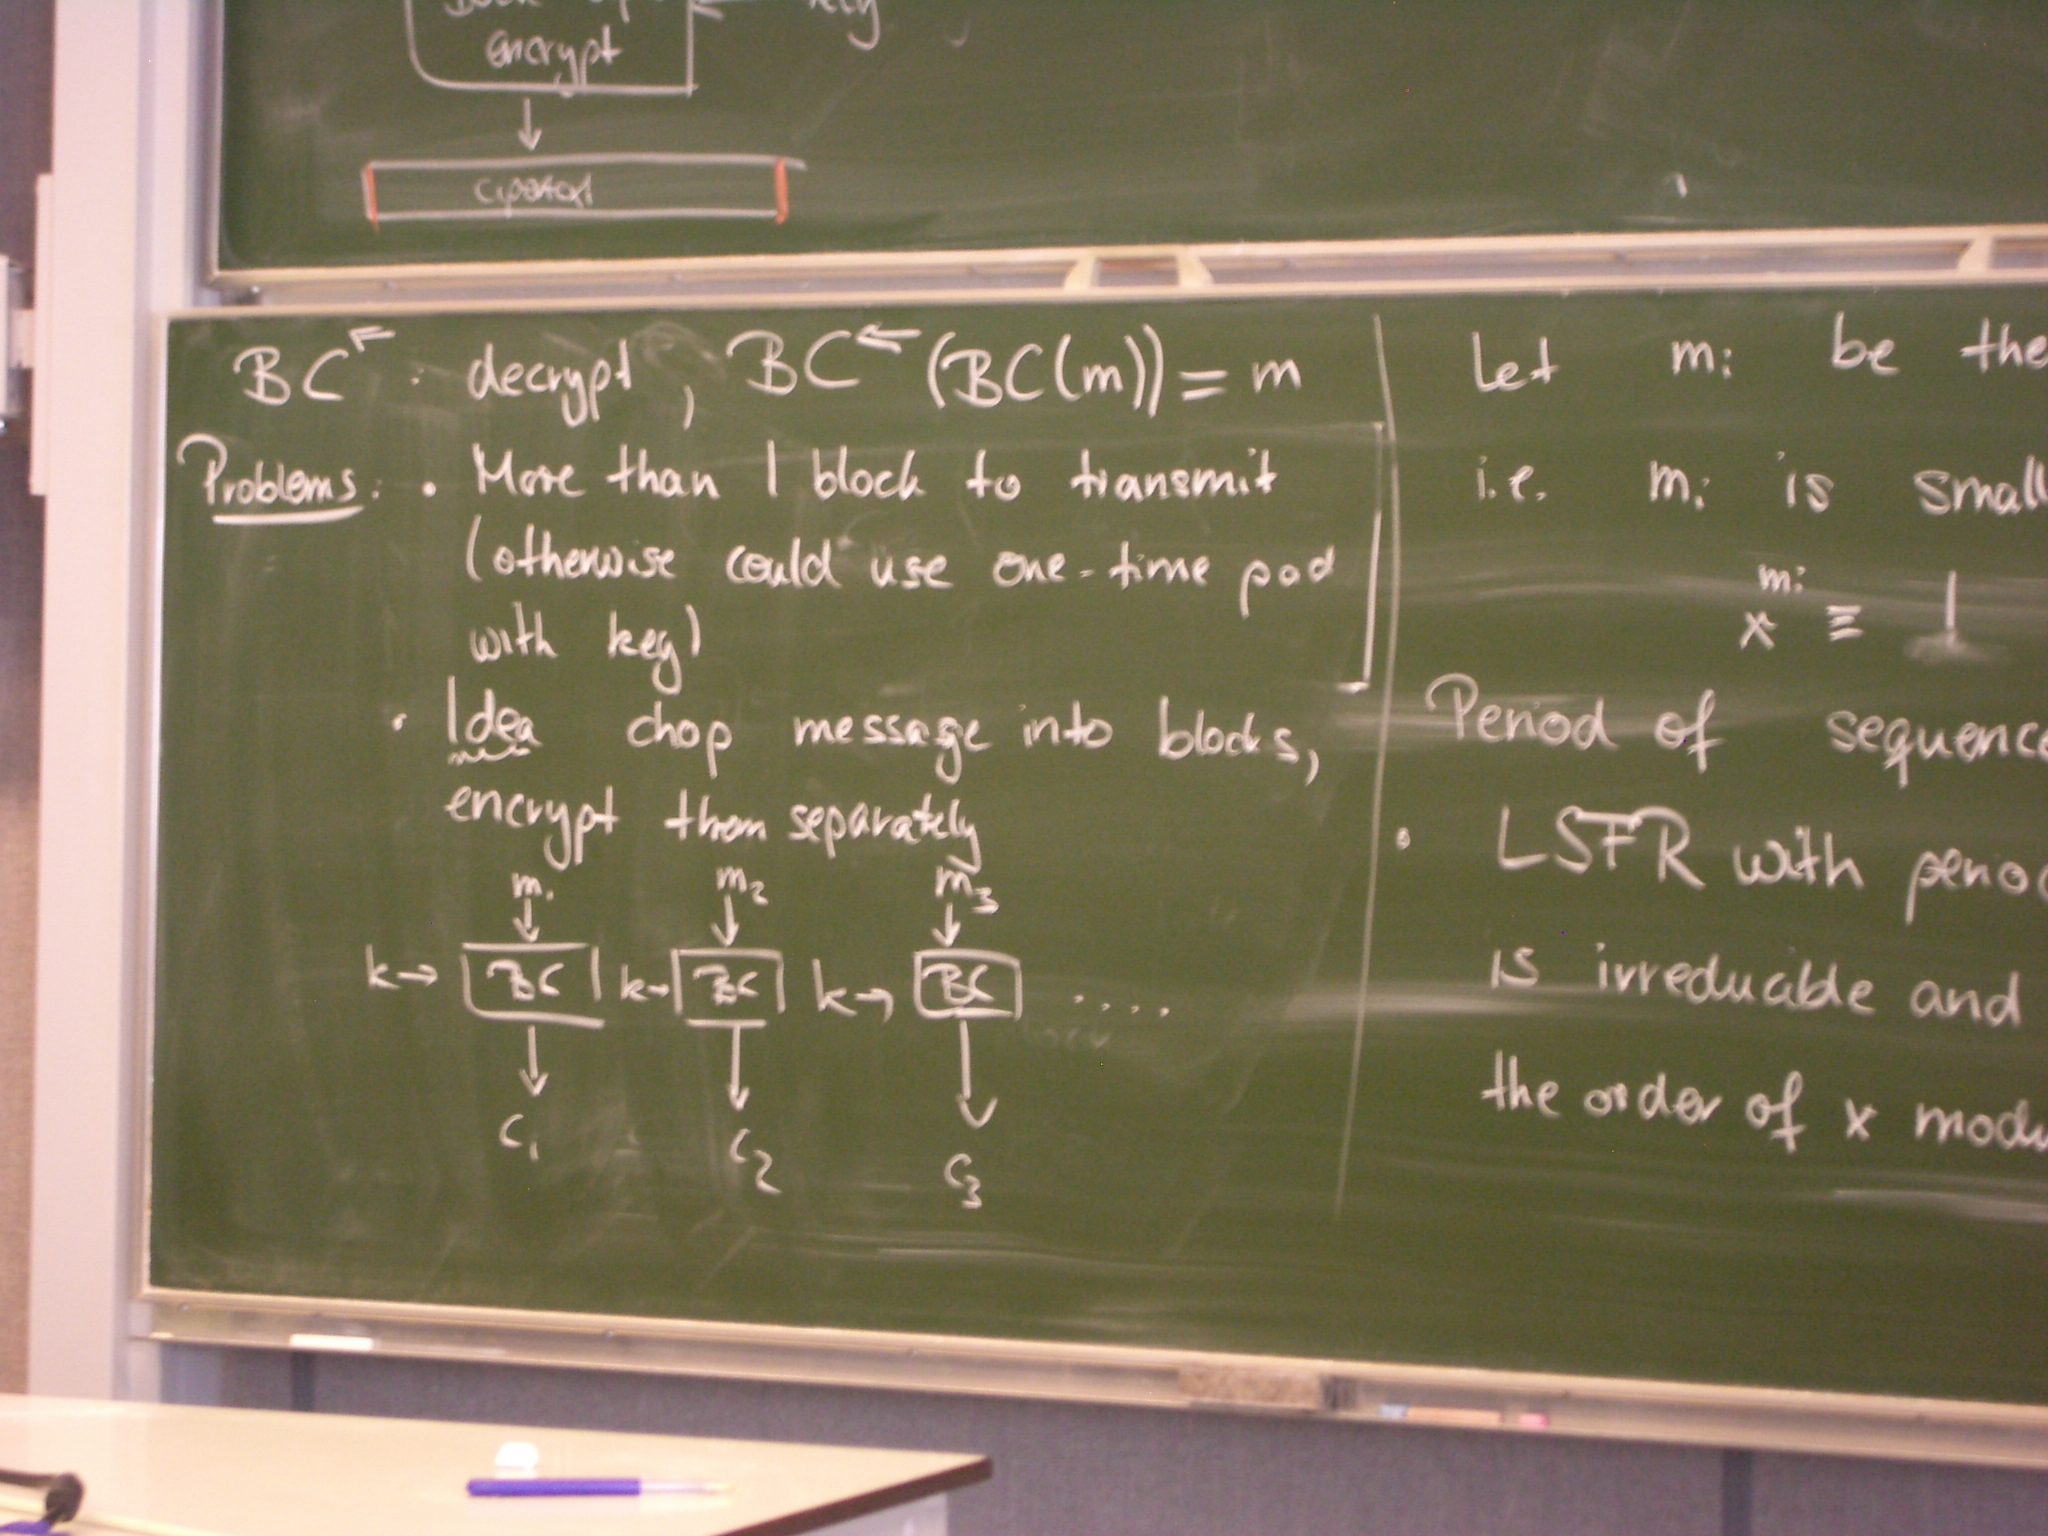 encrypt
key
BC← : decrypt, BC← (BC(m)) = m
Problems: • More than 1 block to transmit
(otherwise could use one-time pad
with key)
• Idea chop message into blocks,
encrypt them separately
m₁ m₂ m₃
k→ BC k→ BC k→ BC ....
c₁ c₂ c₃
Let mᵢ be the
i.e. mᵢ is small
x^mᵢ ≡ 1
Period of sequence
• LSFR with period
is irreducible and
the order of x modu